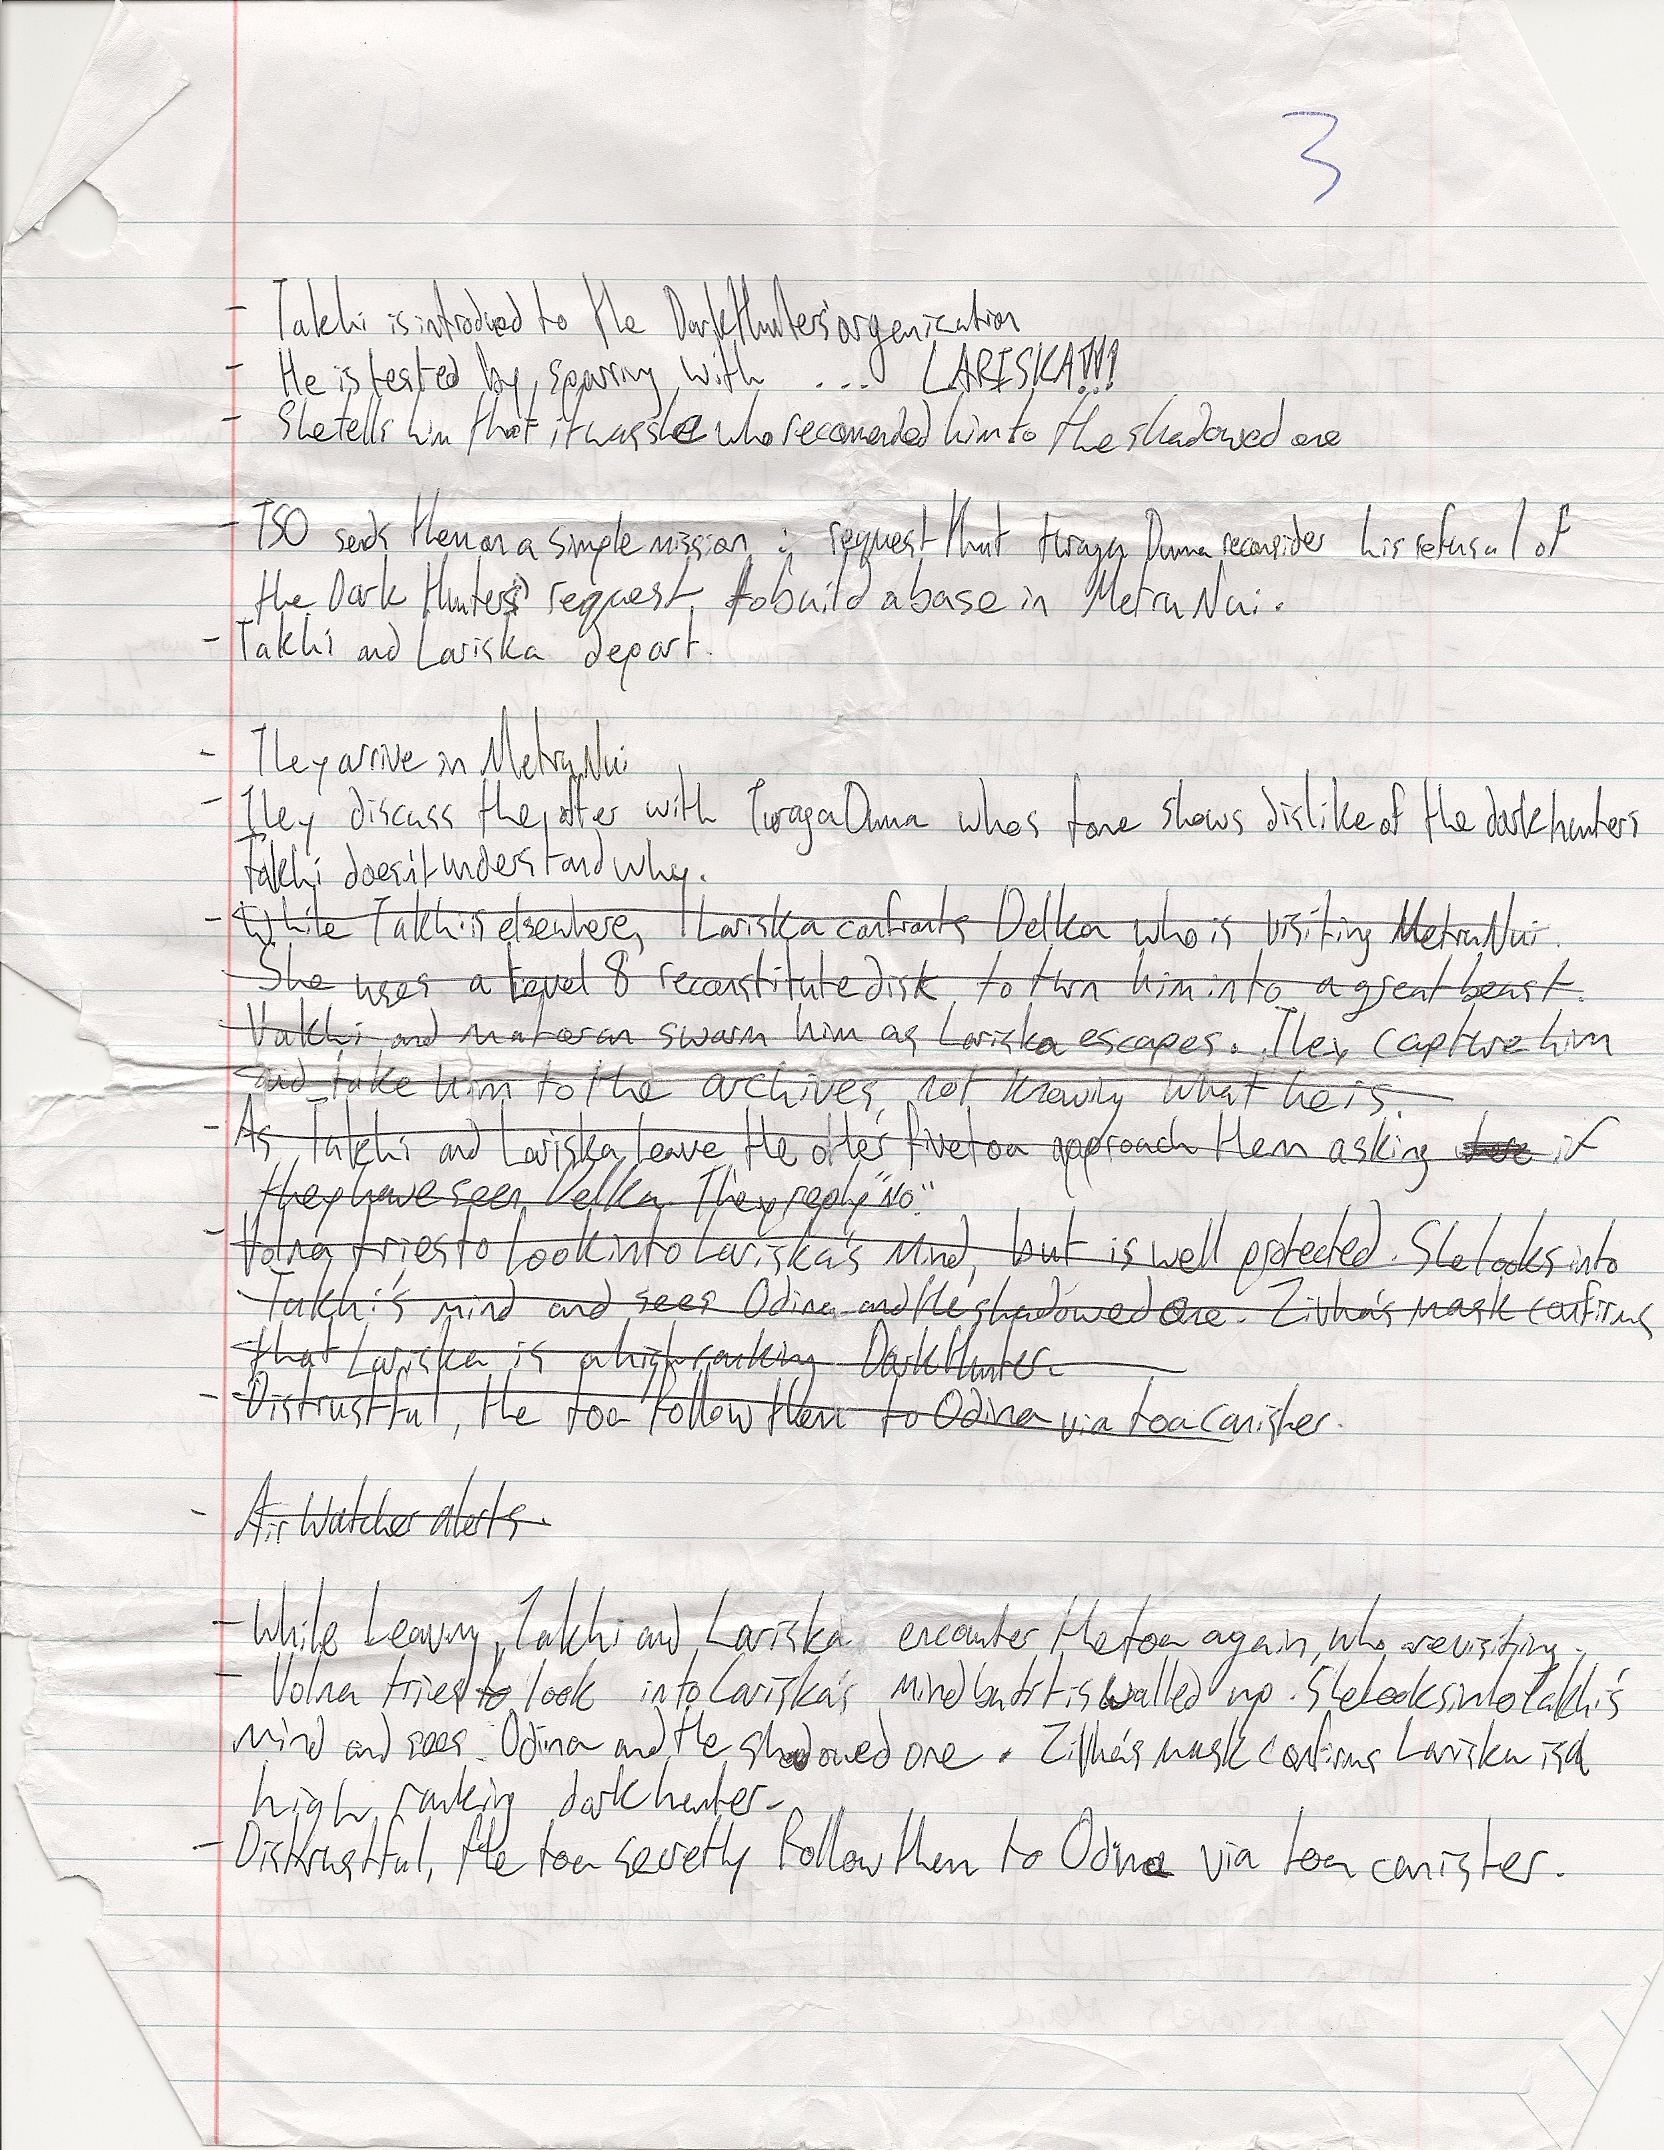 3
- Takhi is introduced to the Dark Hunters' orgenization
- He is tested by sparring with ... LARISKA!!!
- She tells him that it was she who recomended him to the shadowed one
- TSO sends them on a simple mission: request that turaga Duma reconsider his refusal of
the Dark Hunters' request to build a base in Metru Nui.
- Takhi and Lariska depart.
- They arrive in Metru Nui
- They discuss the offer with Turaga Duma whos tone shows dislike of the dark hunters
Takhi doesn't understand why.
- While Takhi is elsewhere, Lariska confronts Delka who is visiting Metru Nui.
She uses a level 8 reconstitute disk to turn him into a great beast.
Vahki and matoran swarm him as Lariska escapes. They capture him
and take him to the archives, not knowing what he is.
- As Takhi and Lariska leave the other five toa approach them asking if
they have seen Delka. They reply "No."
- Volna tries to look into Lariska's mind, but is well protected. She looks into
Takhi's mind and sees Odina and the shadowed one. Zivha's mask confirms
that Lariska is a high ranking Dark Hunter.
- Distrustful, the toa follow them to Odina via toa canister.
- Air Watcher alerts.
- While leaving, Takhi and Lariska encounter the toa again, who are visiting.
- Volna tries to look into Lariska's mind but it is walled up. She looks into Takhi's
mind and sees Odina and the shadowed one. Zivha's mask confirms Lariska is a
high ranking dark hunter.
- Distrustful, the toa secretly follow them to Odina via toa canister.